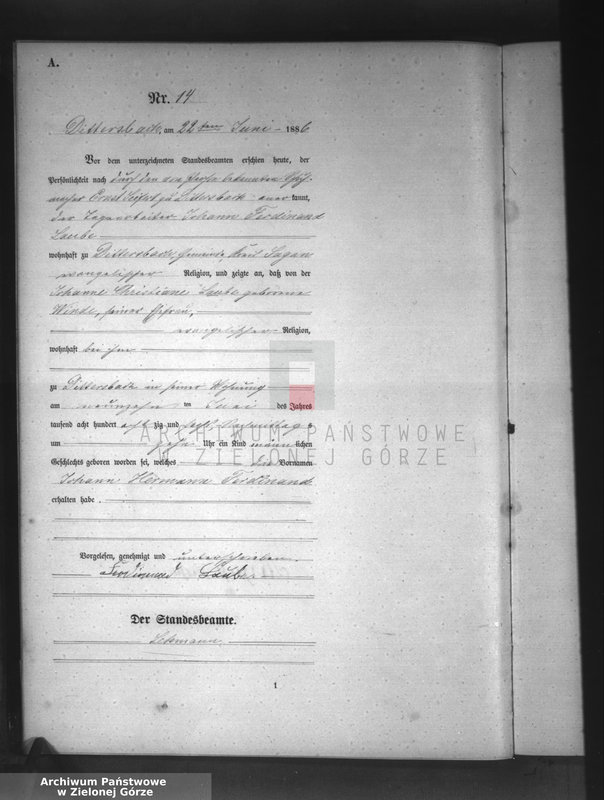 A.
Nr. 14
Dittersbach, am 22ten Juni 1886
Vor dem unterzeichneten Standesbeamten erschien heute, der
Persönlichkeit nach durch den von Person bekannten
Ernst Seifert zu Dittersbach anerkannt,
der Tagearbeiter Johann Ferdinand
Laube
wohnhaft zu Dittersbach Gemeinde, Kreis Sagan
evangelischer Religion, und zeigte an, daß von der
Johanne Christiane Laube geborene
Winde, seiner Ehefrau,
evangelischer Religion,
wohnhaft bei ihm
zu Dittersbach in seiner Wohnung
am neunzehn ten Juni des Jahres
tausend acht hundert acht zig und sechs Vormittags
um zehn Uhr ein Kind männlichen
Geschlechts geboren worden sei, welches die Vornamen
Johann Hermann Ferdinand
erhalten habe.
ARCHIWUM PAŃSTWOWE
W ZIELONEJ GÓRZE
Vorgelesen, genehmigt und unterschrieben.
Ferdinand Laube
Der Standesbeamte.
Lehmann
1
Archiwum Państwowe
w Zielonej Górze